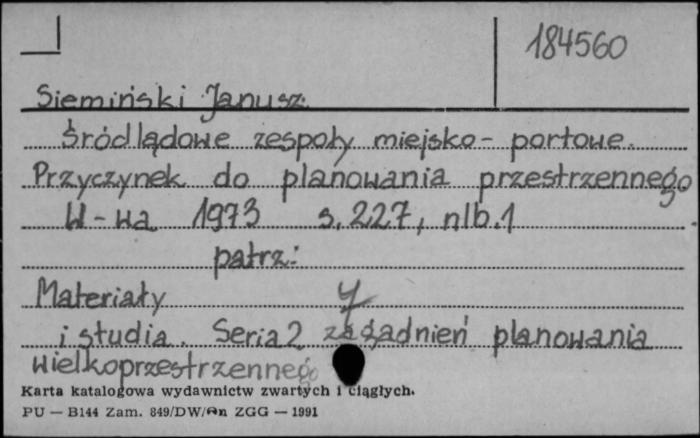 184560
Siemiński Janusz.
Śródlądowe zespoły miejsko-portowe.
Przyczynek do planowania przestrzennego
W-wa 1973 s. 227, nlb. 1
patrz:
Materiały
i studia. Seria 2 zagadnień planowania
wielkoprzestrzennego
Karta katalogowa wydawnictw zwartych i ciągłych.
PU — B144 Zam. 849/DW/ ZGG — 1991